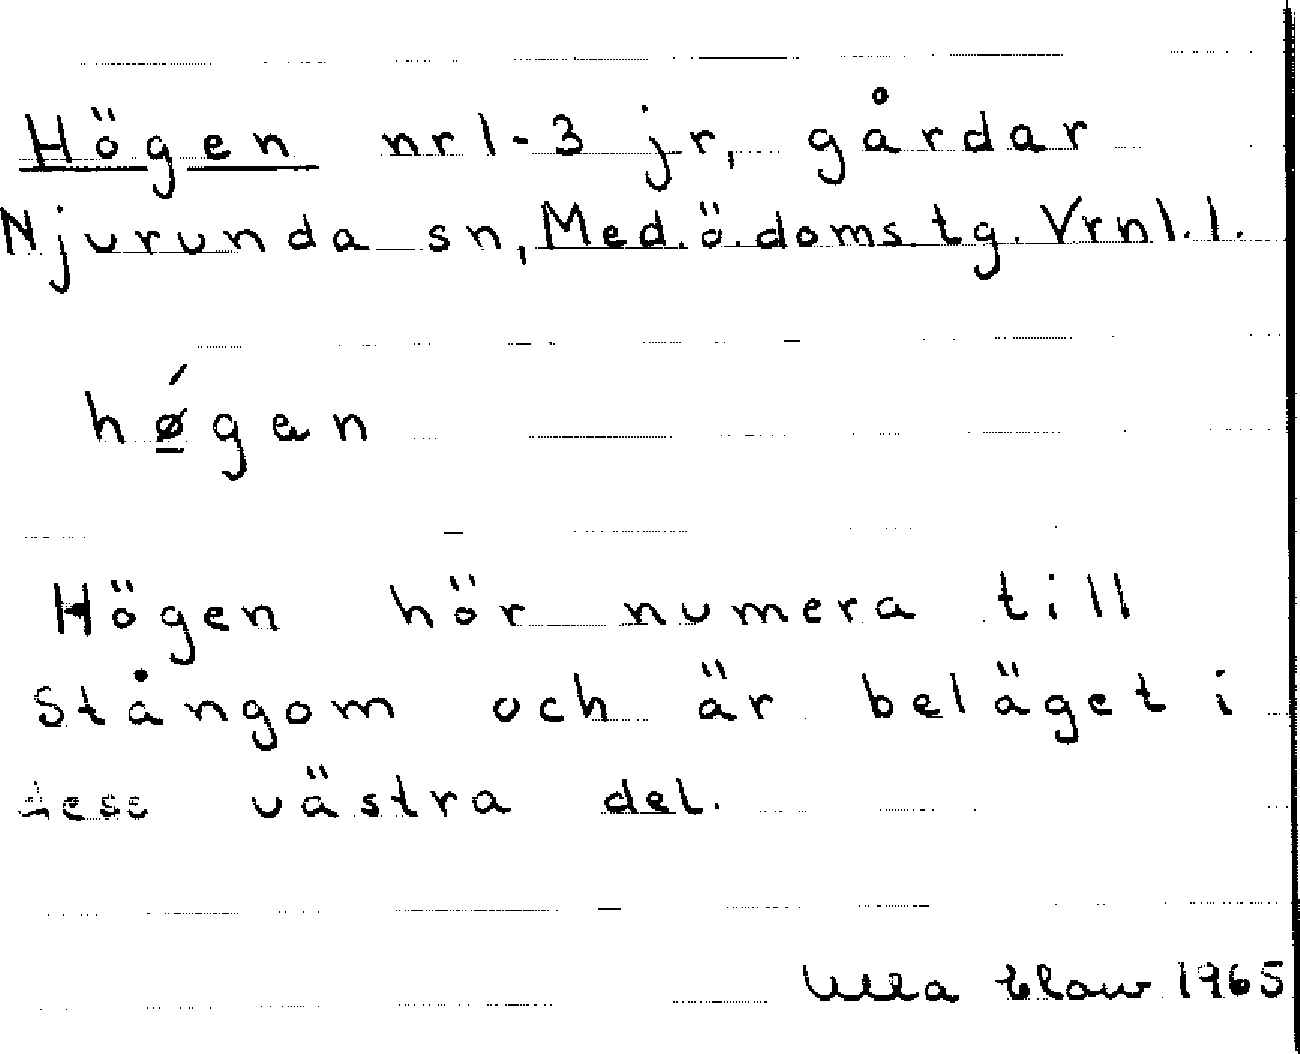 Högen nr 1-3 jr, gårdar
Njurunda sn, Med.ö.doms.tg. Vrnl.l.
hǿ̲gen
Högen hör numera till
Stångom och är beläget i
dess västra del.
Ulla Claw 1965